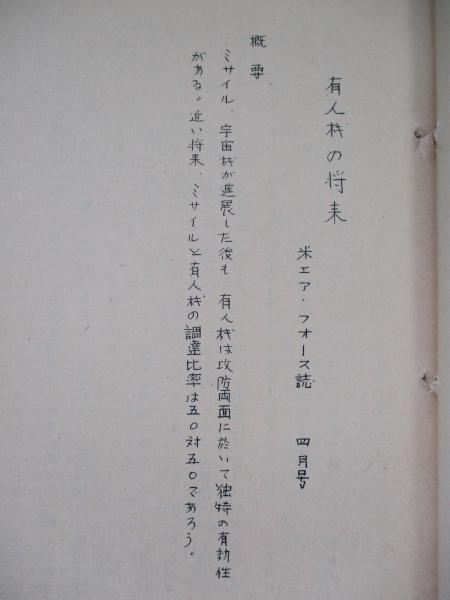 有人机の将来
米エア・フォース誌 四月号
概要
ミサイル、宇宙机が進展した後も 有人机は攻防両面に於いて独特の有効性
がある。近い将来、ミサイルと有人机の調達比率は五〇対五〇であろう。